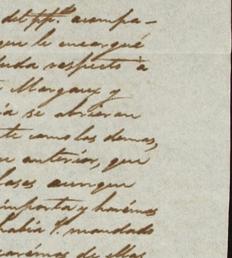 del pp.do acompa-
que le encargué
duda respecto à
Margaux y
se abrieran
te como los demas,
anterior, que
aunque
importa y haremos
habia V. mandado
de ellas